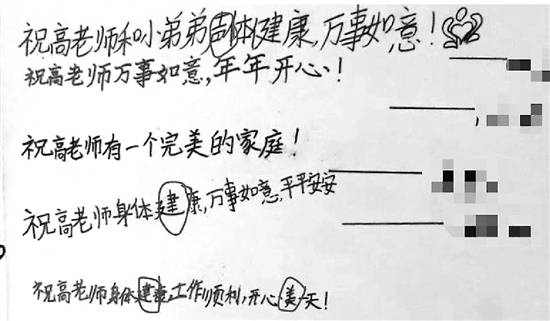 祝高老师和小弟弟声体健康,万事如意!
祝高老师万事如意,年年开心!
祝高老师有一个完美的家庭!
祝高老师身体建康,万事如意,平平安安
祝高老师身体建康,工作顺利,开心美天!